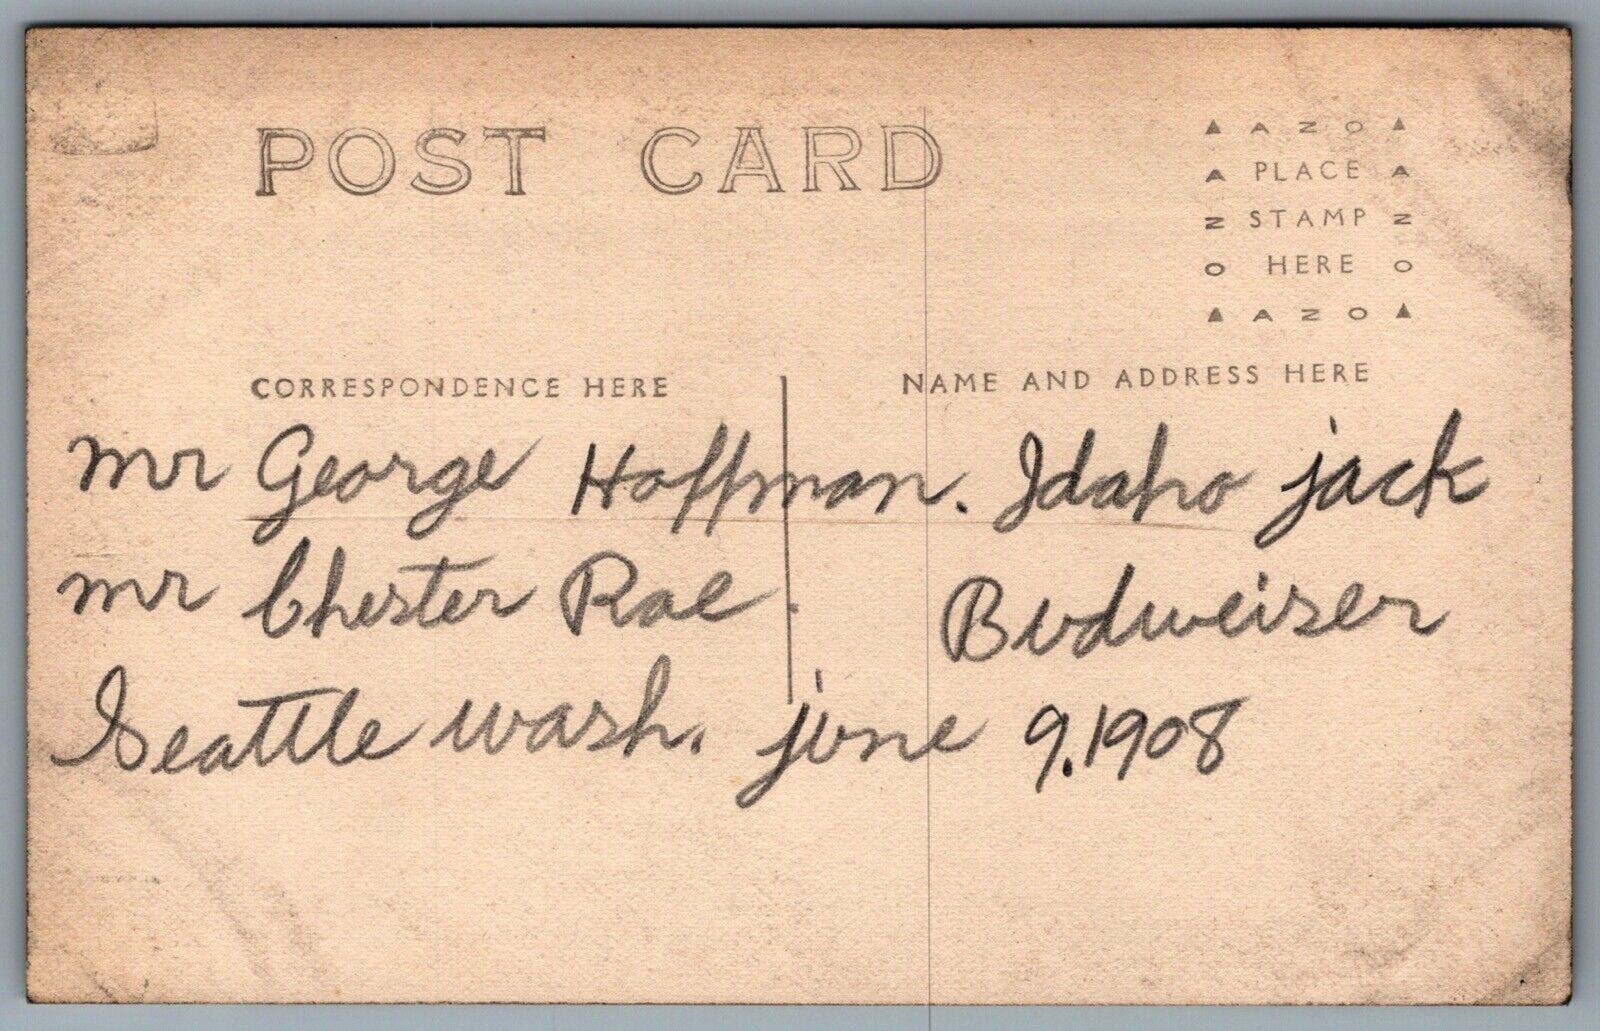 POST CARD
AZO
PLACE
STAMP
HERE
AZO
AZO
AZO
CORRESPONDENCE HERE
NAME AND ADDRESS HERE
mr George Hoffman. Idaho jack
mr Chester Rae. Budweiser
Seattle wash. june 9.1908